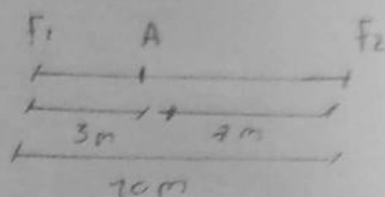 F₁ A F₂
3m 7m
10m